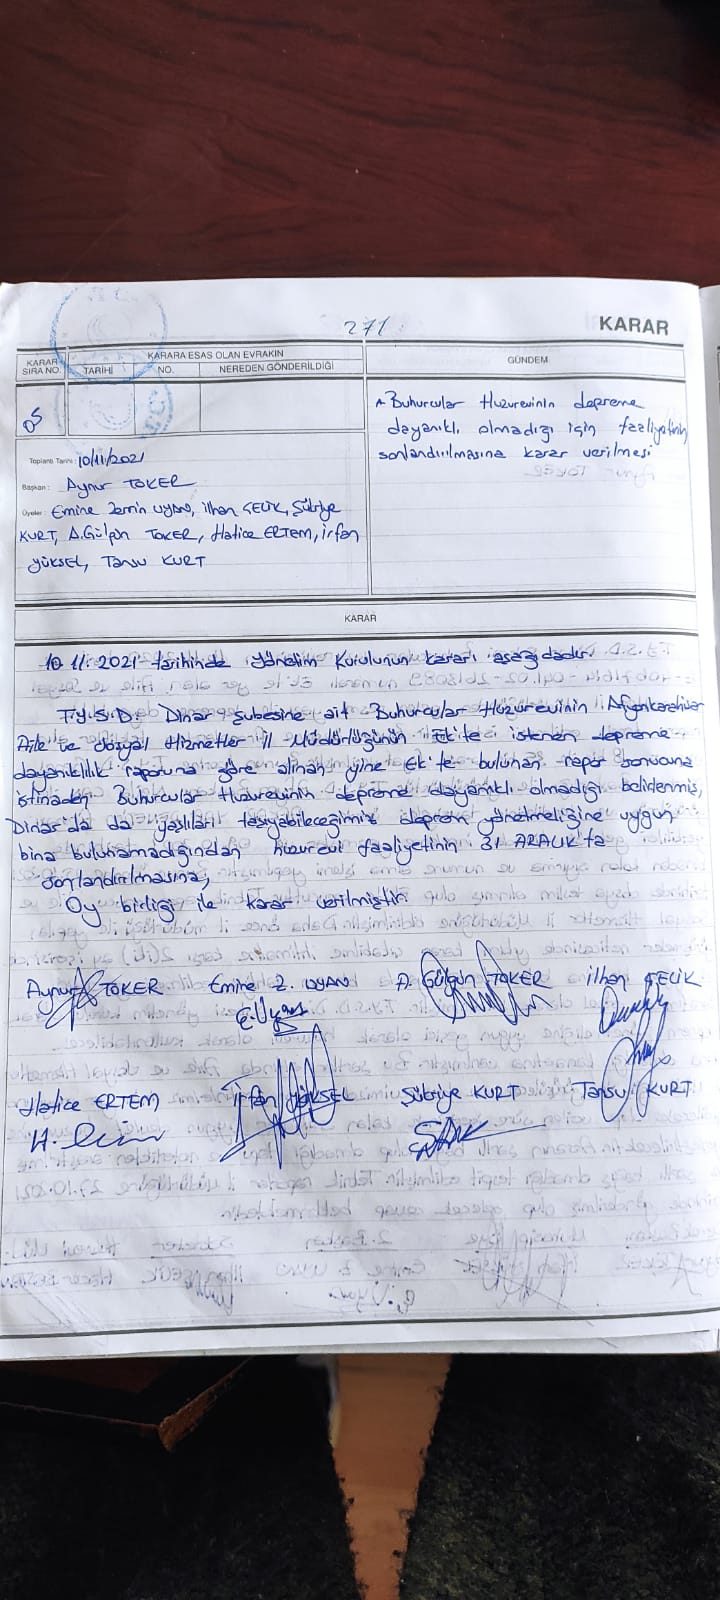 271
KARAR
KARAR SIRA NO.
KARARA ESAS OLAN EVRAKIN
TARİHİ
NO.
NEREDEN GÖNDERİLDİĞİ
GÜNDEM
05
Buhurcular Huzurevinin depreme
dayanıklı olmadığı için faaliyetinin
sonlandırılmasına karar verilmesi
Toplantı Tarihi: 10/11/2021
Başkan: Aynur TOKER
Üyeler: Emine Zerrin UYAN, İlhan ÇELİK, Şükriye
KURT, A.Gülgün TOKER, Hatice ERTEM, İrfan
YÜKSEL, Tansu KURT
KARAR
10.11.2021 tarihinde Yönetim Kurulunun kararı aşağıdadır.
T.Y.S.D. Dinar Şubesine ait Buhurcular Huzurevinin Afyonkarahisar
Aile ve Sosyal Hizmetler İl Müdürlüğünün Ek'te istenen depreme
dayanıklılık raporuna göre alınan yine Ek'te bulunan rapor sonucuna
istinaden Buhurcular Huzurevinin depreme dayanıklı olmadığı belirlenmiş,
Dinar'da da yaşlıları taşıyabileceğimiz deprem yönetmeliğine uygun
bina bulunamadığından huzurevi faaliyetinin 31 ARALIK'ta
sonlandırılmasına,
Oy birliği ile karar verilmiştir.
Aynur TOKER Emine Z. UYAN A. Gülgün TOKER İlhan ÇELİK
E.Uyan
Hatice ERTEM İrfan YÜKSEL Şükriye KURT Tansu KURT